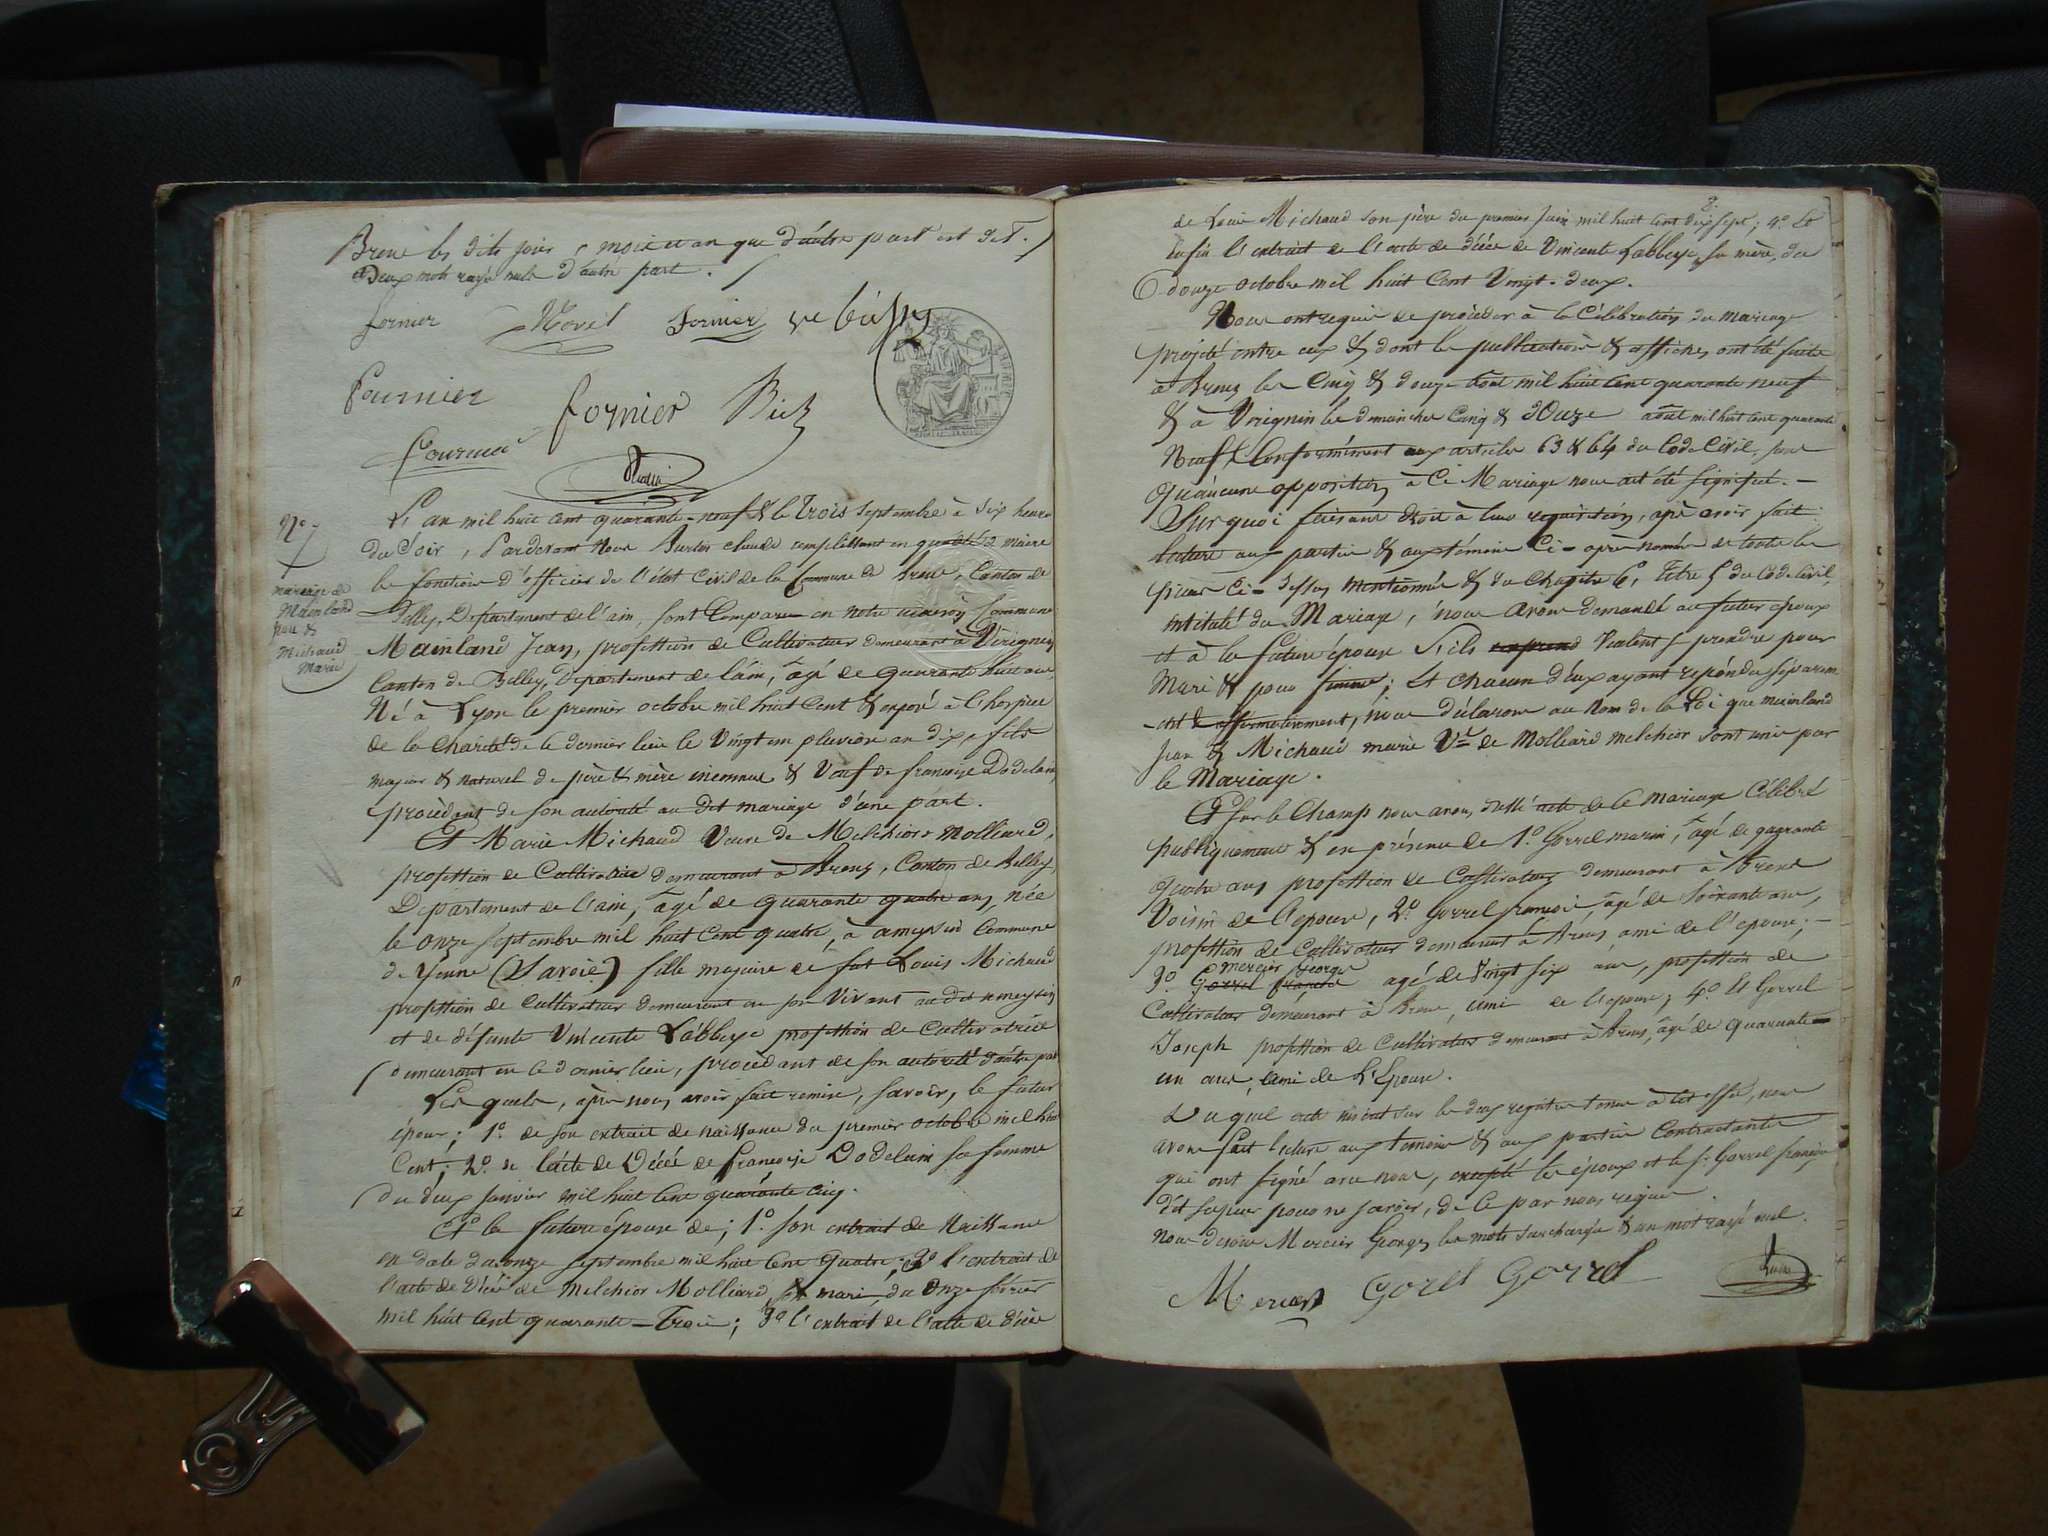 Brens les dits jour, mois et an que d'autre part est dit.
Deux mots rayés nuls d'autre part.
fornier Novel Fornier
Fournier fornier
N.e 7
mariage de
Mainland
Jean &
Michaud
Marie
L'an mil huit cent quarante-neuf & le Trois Septembre à Six heures
du Soir, Pardevant Nous Burlin claude remplissant en qualité de maire
les fonctions d'officier de l'état civil de la Commune de Brens, Canton de
Belley, Département de l'ain, sont Comparus en notre maison Commune
Mainland Jean, profession de Cultivateur demeurant à Virignin
Canton de Belley, Département de l'ain, âgé de quarante huit ans,
Né à Lyon le premier octobre mil huit Cent & exposé à l'hospice
de la Charité de ce dernier lieu le Vingt un pluviôse an dix, fils
majeur & naturel de père & mère inconnus & Veuf de françoise Dodelain
procèdent de son autorité au dit mariage d'une part.
Et Marie Michaud Veuve de Melchior Molliard,
profession de Cultivatrice demeurant à Brens, Canton de Belley,
Département de l'ain, âgé de quarante quatre ans, née
le onze septembre mil huit cent quatre, à ameysin Commune
de Yenne (Savoie) fille majeure de fut Louis Michaud
profession de Cultivateur demeurant en son Vivant au dit ameysin
et de défunte Vincente Labbeye profession de Cultivatrice
demeurant en ce dernier lieu, procèdant de son autorité d'autre part
Les quels, après nous avoir fait remise, savoir, le futur
époux; 1.o de son extrait de naissance du premier octobre mil huit
Cent; 2.o de l'acte de Décès de françoise Dodelain sa femme
du deux Janvier mil huit cent quarante cinq.
Et la future épouse de; 1.o son extrait de Naissance
en date du onze septembre mil huit Cent quatre; 2.o l'extrait de
l'acte de Décès de Melchior Molliard, son mari, du Onze février
mil huit cent quarante-Trois; 3.o l'extrait de l'acte de décès
de Louis Michaud son père du premier Juin mil huit cent dix sept; 4.o Et
Enfin l'extrait de l'acte de décès de Vincente Labbeye, sa mère, du
douze octobre mil huit Cent Vingt-deux.
Nous ont requis de procéder à la Célébration du mariage
projeté entre eux & dont les publications & affiches ont été faites
à Brens les Cinq & douze août mil huit cent quarante neuf
& à Virignin les dimanches Cinq & dOuze août mil huit cent quarante
Neuf, Conformément aux articles 63 & 64 du Code Civil, sans
Qu'aucune opposition à Ce Mariage nous ait été signifié.-
Sur quoi faisant droit à leur requisition, après avoir fait
lecture aux parties & aux témoins Ci-après nommés de toutes les
pièces Ci-dessus mentionnées & du chapitre 6, titre 5 du Code Civil,
intitulé du Mariage, nous avons demandé au futur époux
et à la future épouse S'ils Veulent se prendre pour
Mari & pour femme; Et chacun d'eux ayant repondu séparem-
-ent & affirmativement, nous déclarons au Nom de la Loi que Mainland
Jean & Michaud marie V.e de Molliard Melchior sont unis par
le Mariage.
Et Sur le Champ nous avons dressé acte de ce mariage Célébré
publiquement & en présence de 1.o Gorrel marin, âgé de quarante
quatre ans profession de Cultivateur demeurant à Brens
Voisin de l'épouse, 2.o Gorrel françois, âgé de Soixante ans,
profession de Cultivateur demeurant à Brens, ami de l'épouse;-
mercier George
3.o Gorrel françois agé de Vingt six ans, profession de
Cultivateur demeurant à Brens, ami de l'épouse; 4.o Et Gorrel
Joseph profession de Cultivateur demeurant à Brens, âgé de quarante-
un ans, ami de L'Epouse.
Duquel acte inscrit sur les deux registres tenus à cet effet, nous
avons fait lecture aux témoins & aux parties Contractantes
qui ont signé avec nous, excepté les époux et le S.r Gorrel françois
dit
Nous disons Mercier Georges les mots surchargés & un mot rayé nul.
Mercier Gorel Gorrel